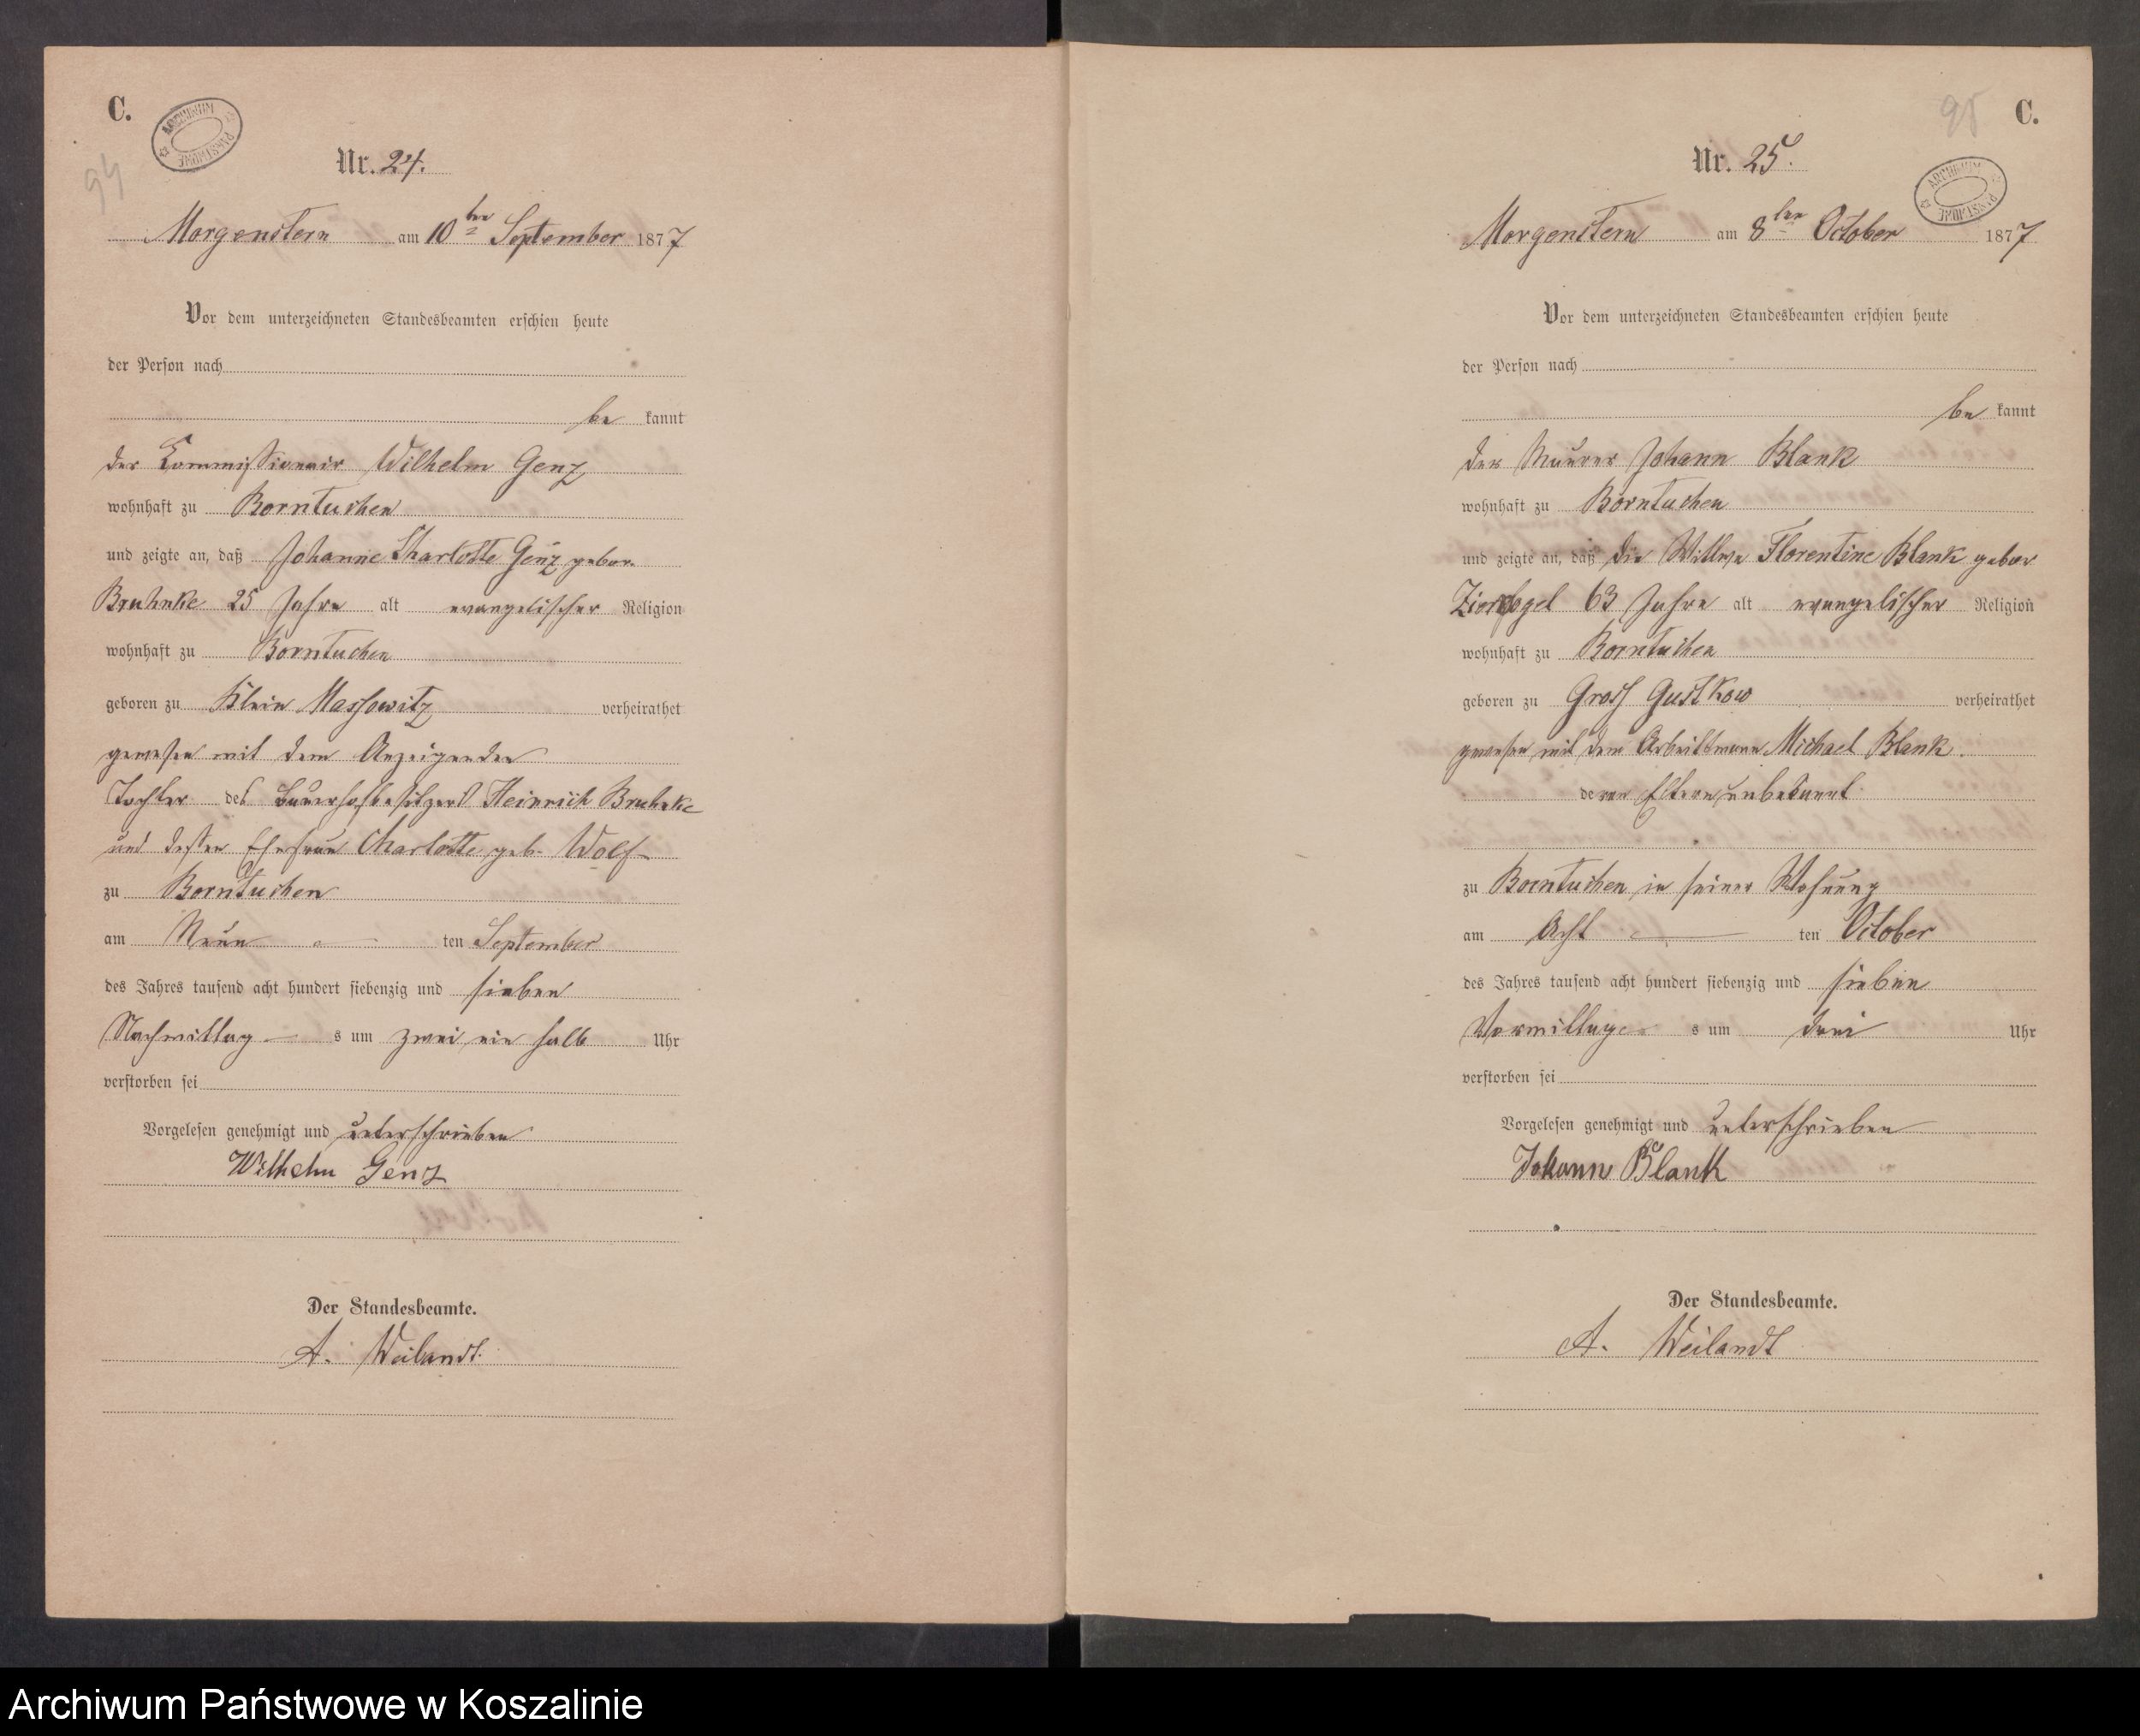 C.
ARCHIWUM PAŃSTWOWE
94
Nr. 24.
Morgenstern am 10ten September 1877
Vor dem unterzeichneten Standesbeamten erschien heute
der Person nach
be kannt
der Commissionair Wilhelm Genz
wohnhaft zu Borntuchen
und zeigte an, daß Johanne Charlotte Genz gebor.
Bruhnke 25 Jahre alt evangelischer Religion
wohnhaft zu Borntuchen
geboren zu Klein Massowitz verheirathet
gewesen mit dem Anzeigenden
Tochter des Bauerhofbesitzers Heinrich Bruhnke
und dessen Ehefrau Charlotte geb. Wolf
zu Borntuchen
am Neun ten September
des Jahres tausend acht hundert siebenzig und sieben
Nachmittag s um zwei ein halb Uhr
verstorben sei
Vorgelesen genehmigt und unterschrieben
Wilhelm Genz
Der Standesbeamte.
A. Weilandt.
95
C.
ARCHIWUM PAŃSTWOWE
Nr. 25.
Morgenstern am 8ten October 1877
Vor dem unterzeichneten Standesbeamten erschien heute
der Person nach
be kannt
der Maurer Johann Blank
wohnhaft zu Borntuchen
und zeigte an, daß die Wittwe Florentine Blank gebor
63 Jahre alt evangelischer Religion
wohnhaft zu Borntuchen
geboren zu Gross Gustkow verheirathet
gewesen mit dem Arbeitsmann Michael Blank.
deren Eltern unbekannt.
zu Borntuchen in seiner Wohnung
am Acht ten October
des Jahres tausend acht hundert siebenzig und sieben
Vormittag s um drei Uhr
verstorben sei
Vorgelesen genehmigt und unterschrieben
Johann Blank
Der Standesbeamte.
A. Weilandt
Archiwum Państwowe w Koszalinie